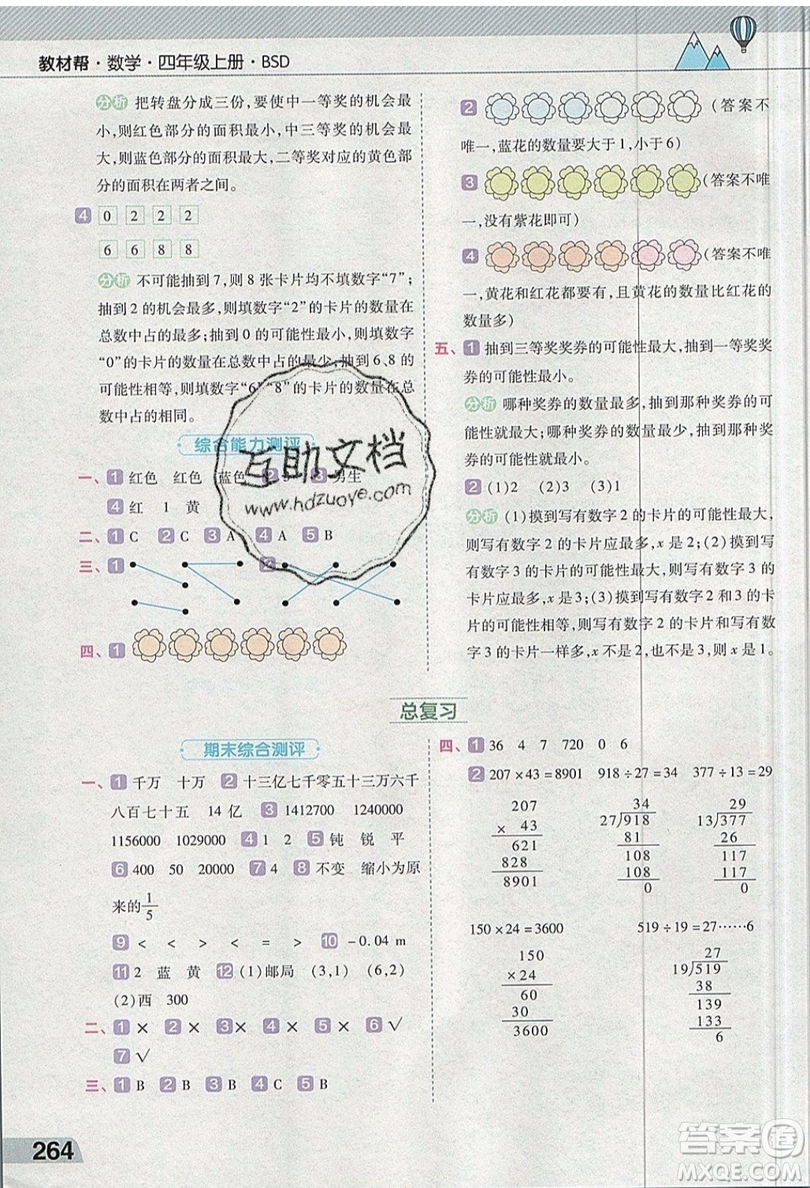 教材帮·数学·四年级上册·BSD
分析 把转盘分成三份,要使中一等奖的机会最
小,则红色部分的面积最小,中三等奖的机会最
大,则蓝色部分的面积最大,二等奖对应的黄色部
分的面积在两者之间。
4 0 2 2 2
6 6 8 8
分析 不可能抽到7,则8张卡片均不填数字“7”;
抽到2的机会最多,则填数字“2”的卡片的数量在
总数中占的最多;抽到0的可能性最小,则填数字
“0”的卡片的数量在总数中占的最少;抽到6、8的
可能性相等,则填数字“6”“8”的卡片的数量在总
数中占的相同。
综合能力测评
一、1 红色 红色 蓝色 2 3 男生
4 红 1 黄
二、1 C 2 C 3 A 4 A 5 B
三、1 2
四、1
2 (答案不
唯一,蓝花的数量要大于1,小于6)
3 (答案不唯
一,没有紫花即可)
4 (答案不唯
一,黄花和红花都要有,且黄花的数量比红花的
数量多)
五、1 抽到三等奖奖券的可能性最大,抽到一等奖奖
券的可能性最小。
分析 哪种奖券的数量最多,抽到那种奖券的可
能性就最大;哪种奖券的数量最少,抽到那种奖券
的可能性就最小。
2 (1)2 (2)3 (3)1
分析 (1)摸到写有数字2的卡片的可能性最大,
则写有数字2的卡片最多,x是2;(2)摸到写有
数字3的卡片的可能性最大,则写有数字3的
卡片最多,x是3;(3)摸到写有数字2和写有数
字3的可能性相等,则写有数字2的卡片和写有
数字3的卡片一样多,x不是2,也不是3,x是1。
总复习
期末综合测评
一、1 千万 十万 2 十三亿七千零五十三万六千
八百七十五 14亿 3 1412700 1240000
1156000 1029000 4 1 2 5 钝 锐 平
6 400 50 20000 7 4 8 不变 缩小为原
来的1/5
9 < < < < = > 10 -0.04 m
11 2 蓝 黄 12 (1)邮局 (3,1) (6,2)
(2)西 300
二、1 × 2 × 3 × 4 × 5 × 6 √
7 √
三、1 B 2 B 3 B 4 C 5 B
四、1 36 4 7 720 0 6
2 207×43=8901 918÷27=34 377÷13=29
207
× 43
621
828
8901
34
27 918
81
108
108
0
29
13 377
26
117
117
0
150×24=3600 519÷19=27……6
150
×24
60
30
3600
27
19 519
38
139
133
6
264
互助文档
www.hdzuoye.com
答案卷
MXQE.COM